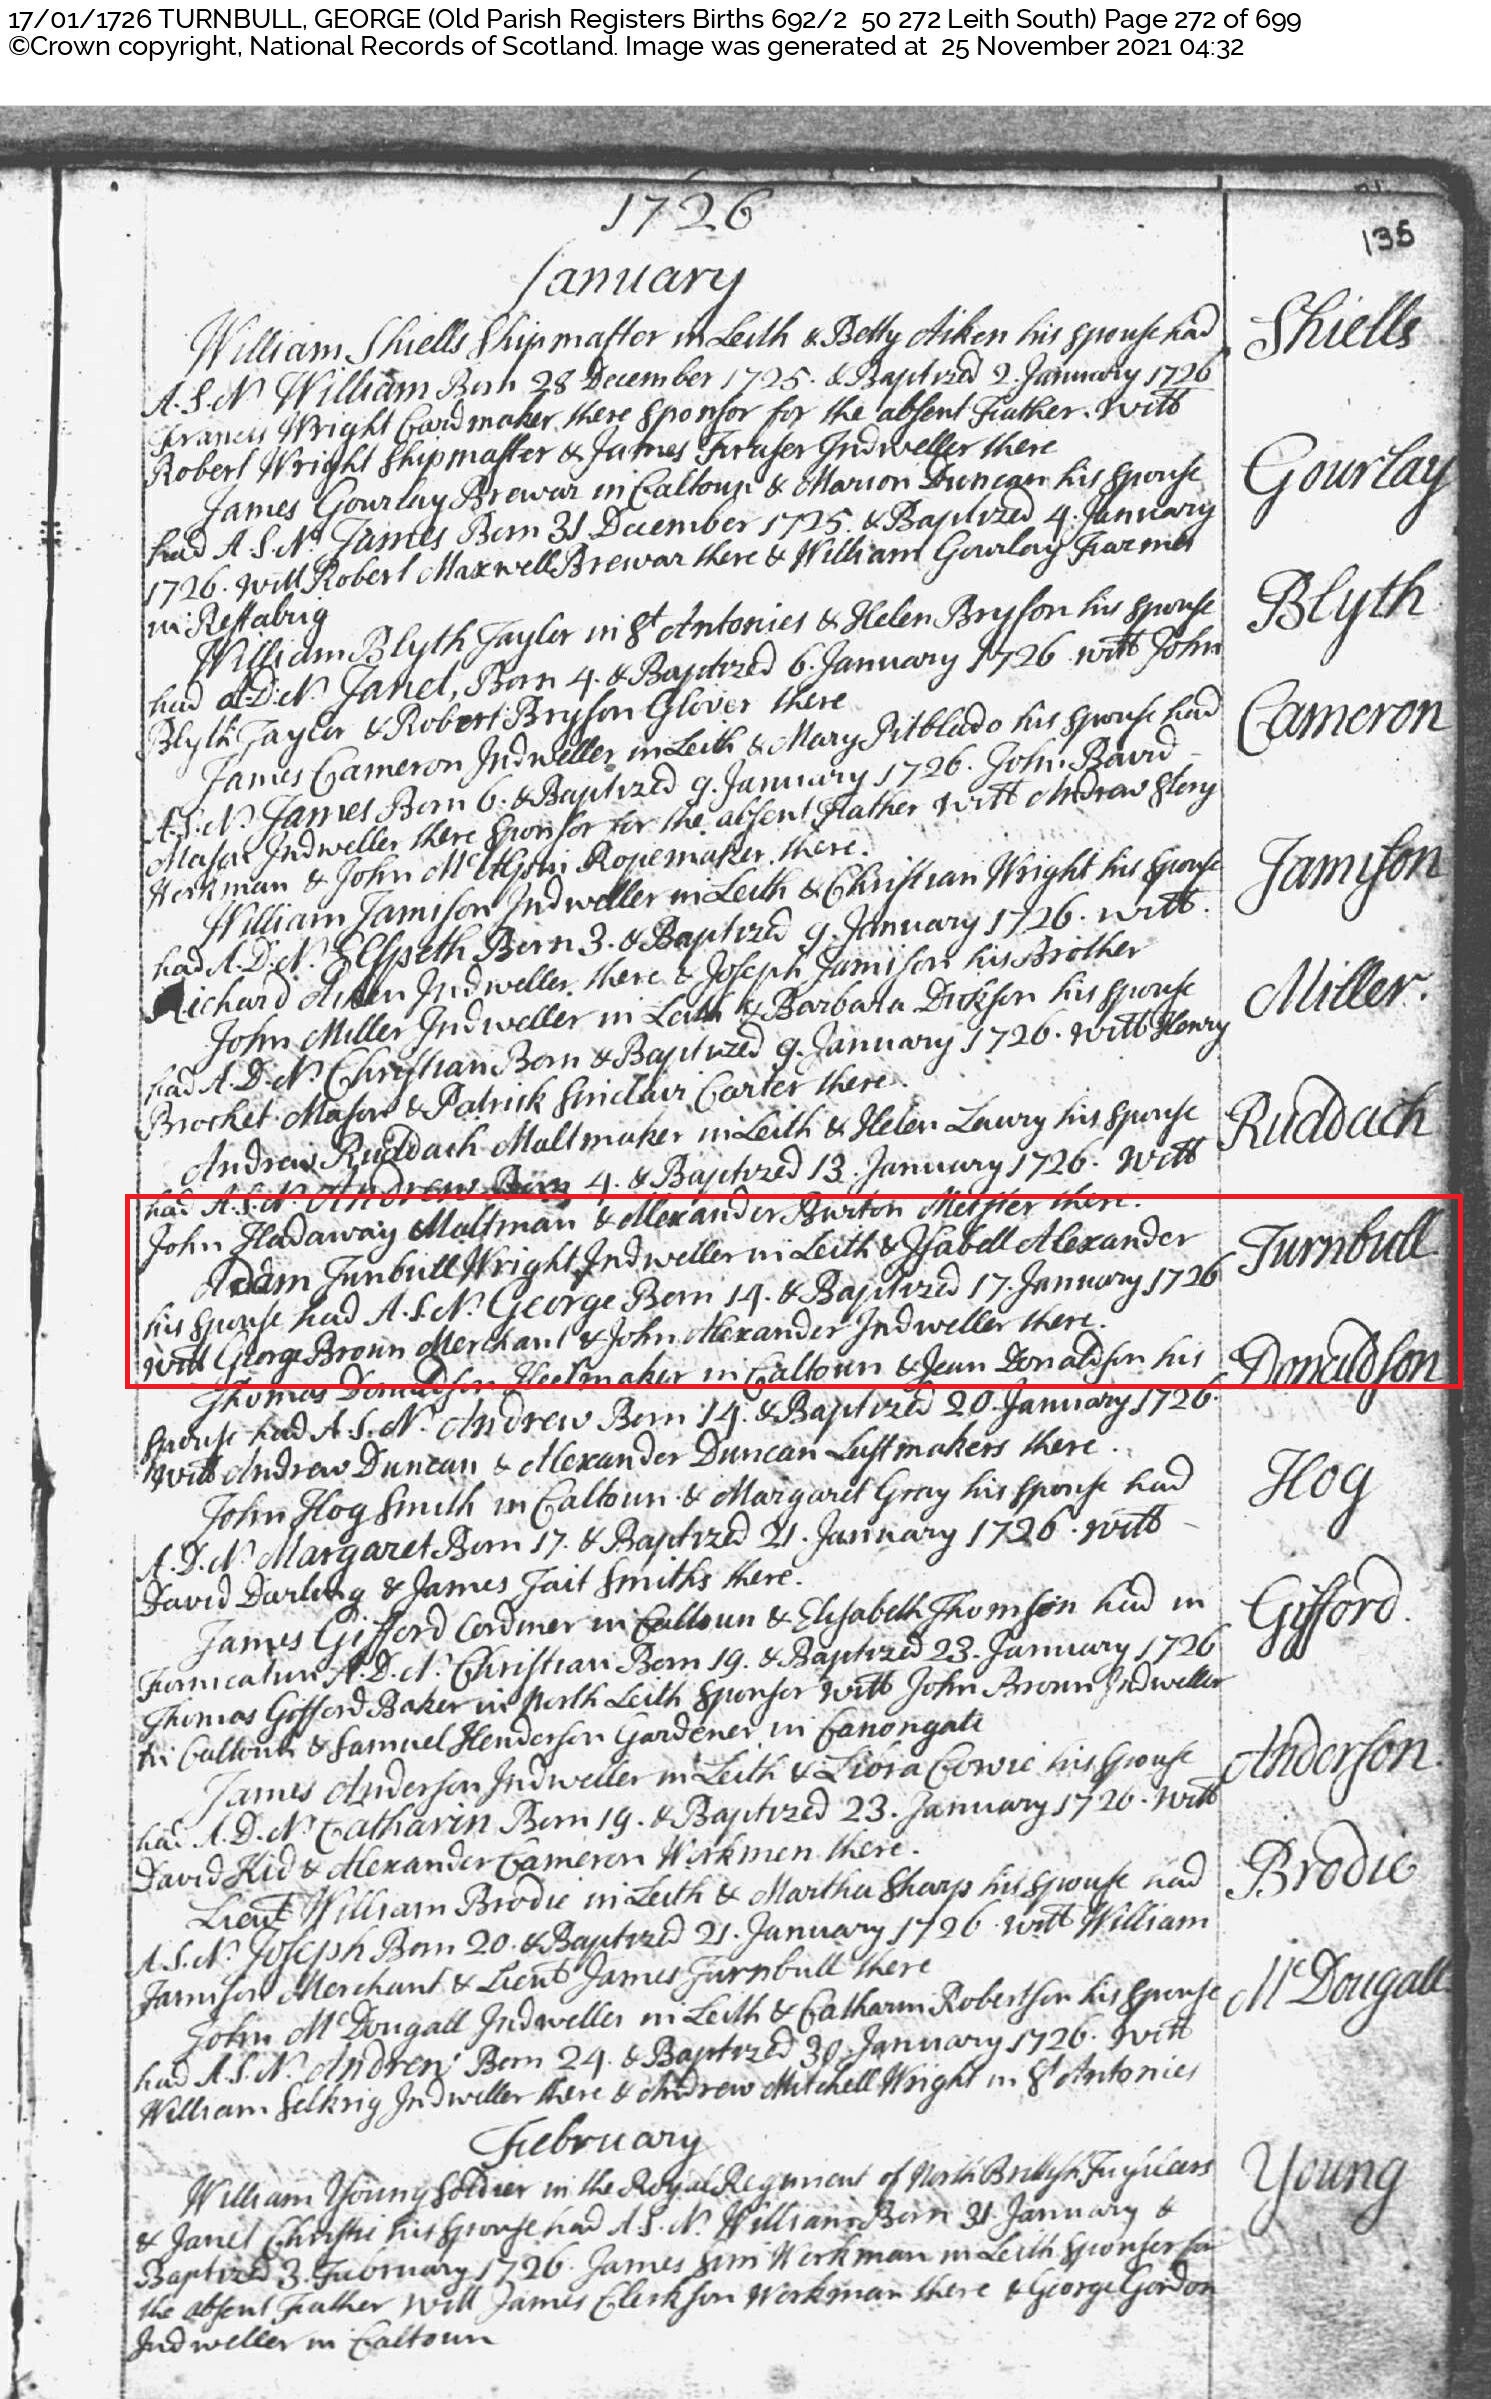 17/01/1726 TURNBULL, GEORGE (Old Parish Registers Births 692/2 50 272 Leith South) Page 272 of 699
©Crown copyright, National Records of Scotland. Image was generated at 25 November 2021 04:32
135
1726
January
William Shiells Shipmaster in Leith & Betty Aiken his spouse had
Shiells
A.S.N. William Born 28 December 1725. & Baptized 2. January 1726
Francis Wright Cardmaker there Sponsor for the absent Father. Witt
Robert Wright Shipmaster & James Fraser Indweller there
James Gourlay Brewar in Caltoun & Marion Duncan his spouse
Gourlay
had A.S.N. James Born 31 December 1725. & Baptized 4. January
1726. Witt Robert Maxwell Brewar there & William Gourlay Farmer
in Restabrig
William Blyth Taylor in St Antonies & Helen Bryson his spouse
Blyth
had A.D.N. Janet, Born 4. & Baptized 6. January 1726. Witt John
Blyth Taylor & Robert Bryson Glover there
James Cameron Indweller in Leith & Mary Pitblado his spouse had
Cameron
A.S.N. James Born 6. & Baptized 9. January 1726. John Baird
Mason Indweller there Sponsor for the absent Father Witt Andrew Story
Workman & John Ropemaker there.
William Jamison Indweller in Leith & Christian Wright his spouse
Jamison
had A.D.N. Elspeth Born 3. & Baptized 9. January 1726. Witt.
Richard Aiken Indweller there & Joseph Jamison his Brother
John Miller Indweller in Leith & Barbara Dickson his spouse
Miller.
had A.D.N. Christian Born & Baptized 9. January 1726. Witt Henry
Brocket Mason & Patrick Sinclair Carter there.
Andrew Ruddach Maltmaker in Leith & Helen Lowry his spouse
Ruddach
had A.S.N. Andrew Born 4. & Baptized 13. January 1726. Witt
John Hadaway Maltman & Alexander Burton there.
Adam Turnbull Wright Indweller in Leith & Isabell Alexander
Turnbull
his spouse had A.S.N. George Born 14. & Baptized 17. January 1726
Witt George Broun Merchant & John Alexander Indweller there.
Thomas Donaldson Heelmaker in Caltoun & Jean Donaldson his
Donaldson
spouse had A.S.N. Andrew Born 14. & Baptized 20. January 1726.
Witt Andrew Duncan & Alexander Duncan Lastmakers there.
John Hog Smith in Caltoun & Margaret Gray his spouse had
Hog
A.D.N. Margaret Born 17. & Baptized 21. January 1726. Witt
David Darling & James Tait Smiths there.
James Gifford Cordiner in Caltoun & Elisabeth Thomson had in
Gifford.
Fornication A.D.N. Christian Born 19. & Baptized 23. January 1726
Thomas Gifford Baker in North Leith Sponsor Witt John Broun Indweller
in Caltoun & Samuel Henderson Gardener in Canongate
James Anderson Indweller in Leith & Cowie his spouse
Anderson.
had A.D.N. Catharin Born 19. & Baptized 23. January 1726. Witt
David Kid & Alexander Cameron Workmen there.
Lieut William Brodie in Leith & Martha Sharp his spouse had
Brodie
A.S.N. Joseph Born 20. & Baptized 21. January 1726. Witt William
Jamison Merchant & Lieut James Turnbull there
John McDougall Indweller in Leith & Catharin Robertson his spouse
McDougall
had A.S.N. Andrew Born 24. & Baptized 30. January 1726. Witt
William Selkrig Indweller there & Andrew Mitchell Wright in St Antonies
February
William Young Soldier in the Royal Regiment of North British Fuziliers
Young
& Janet Christie his spouse had A.S.N. William Born 31. January &
Baptized 3. February 1726. James Sim Workman in Leith Sponsor for
the absent Father Witt James Clerkson Workman there & George Gordon
Indweller in Caltoun